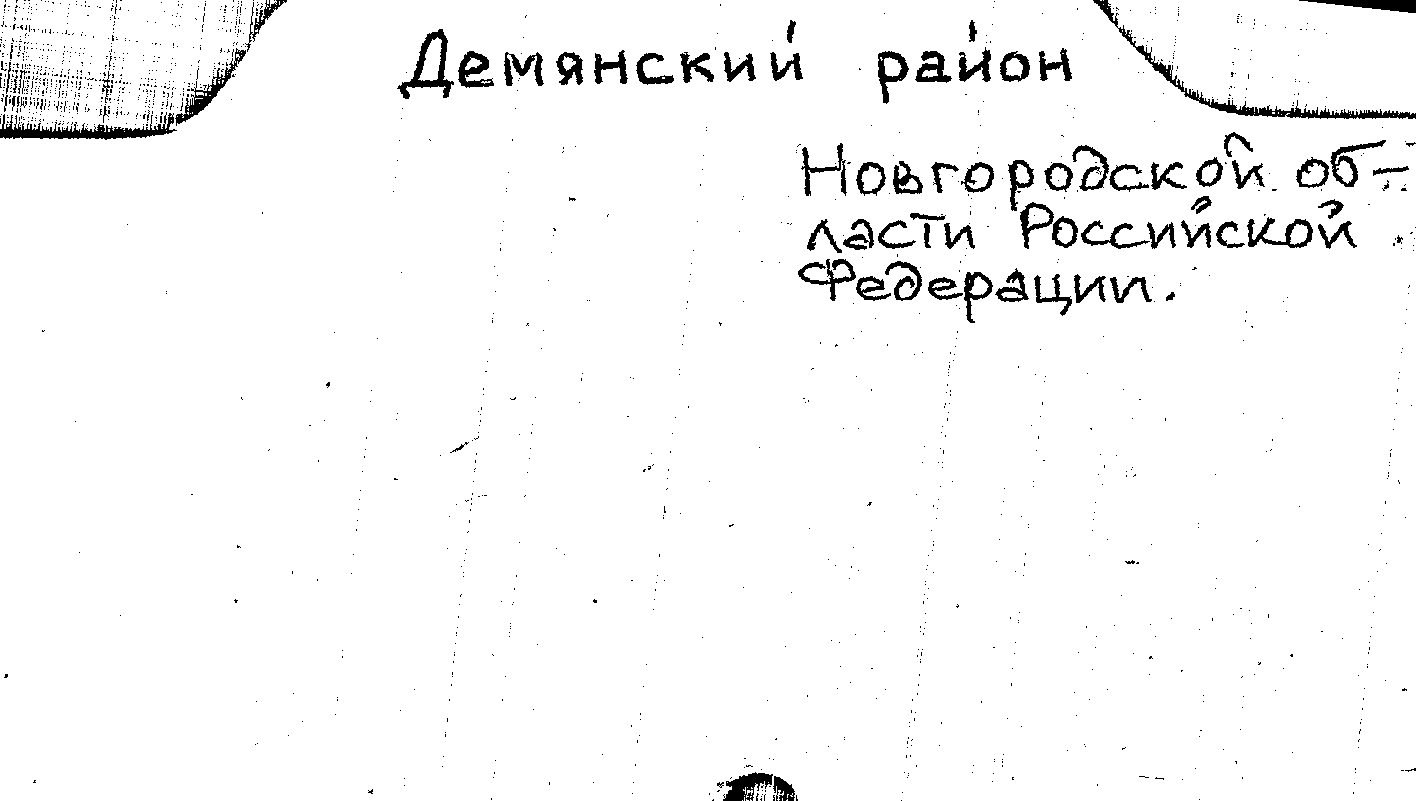 Демянский район
Новгородской об-
ласти Российской
Федерации.